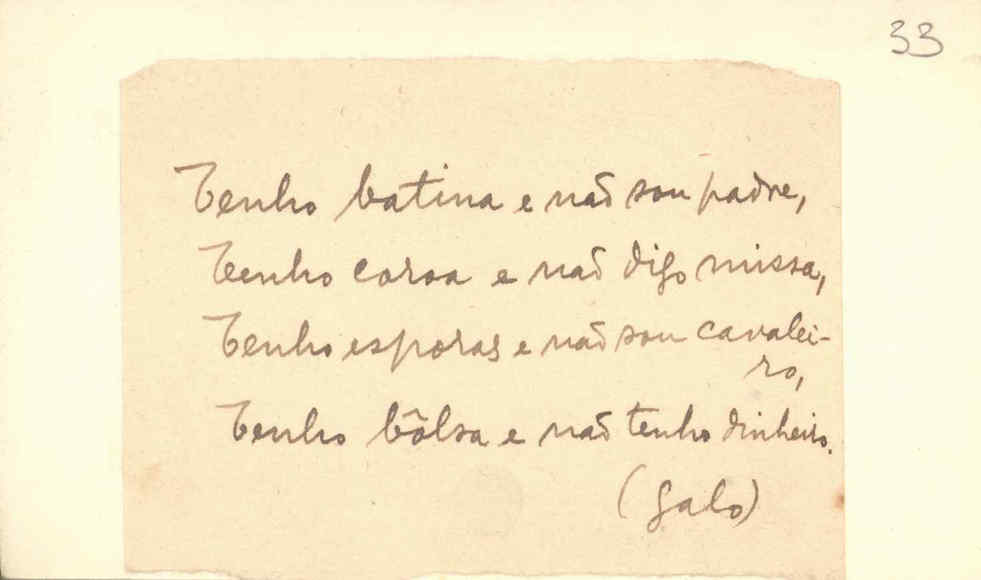 33
Tenho batina e não sou padre,
Tenho coroa e não digo missa,
Tenho esporas e não sou cavalei-
ro,
Tenho bôlsa e não tenho dinheiro.
(galo)